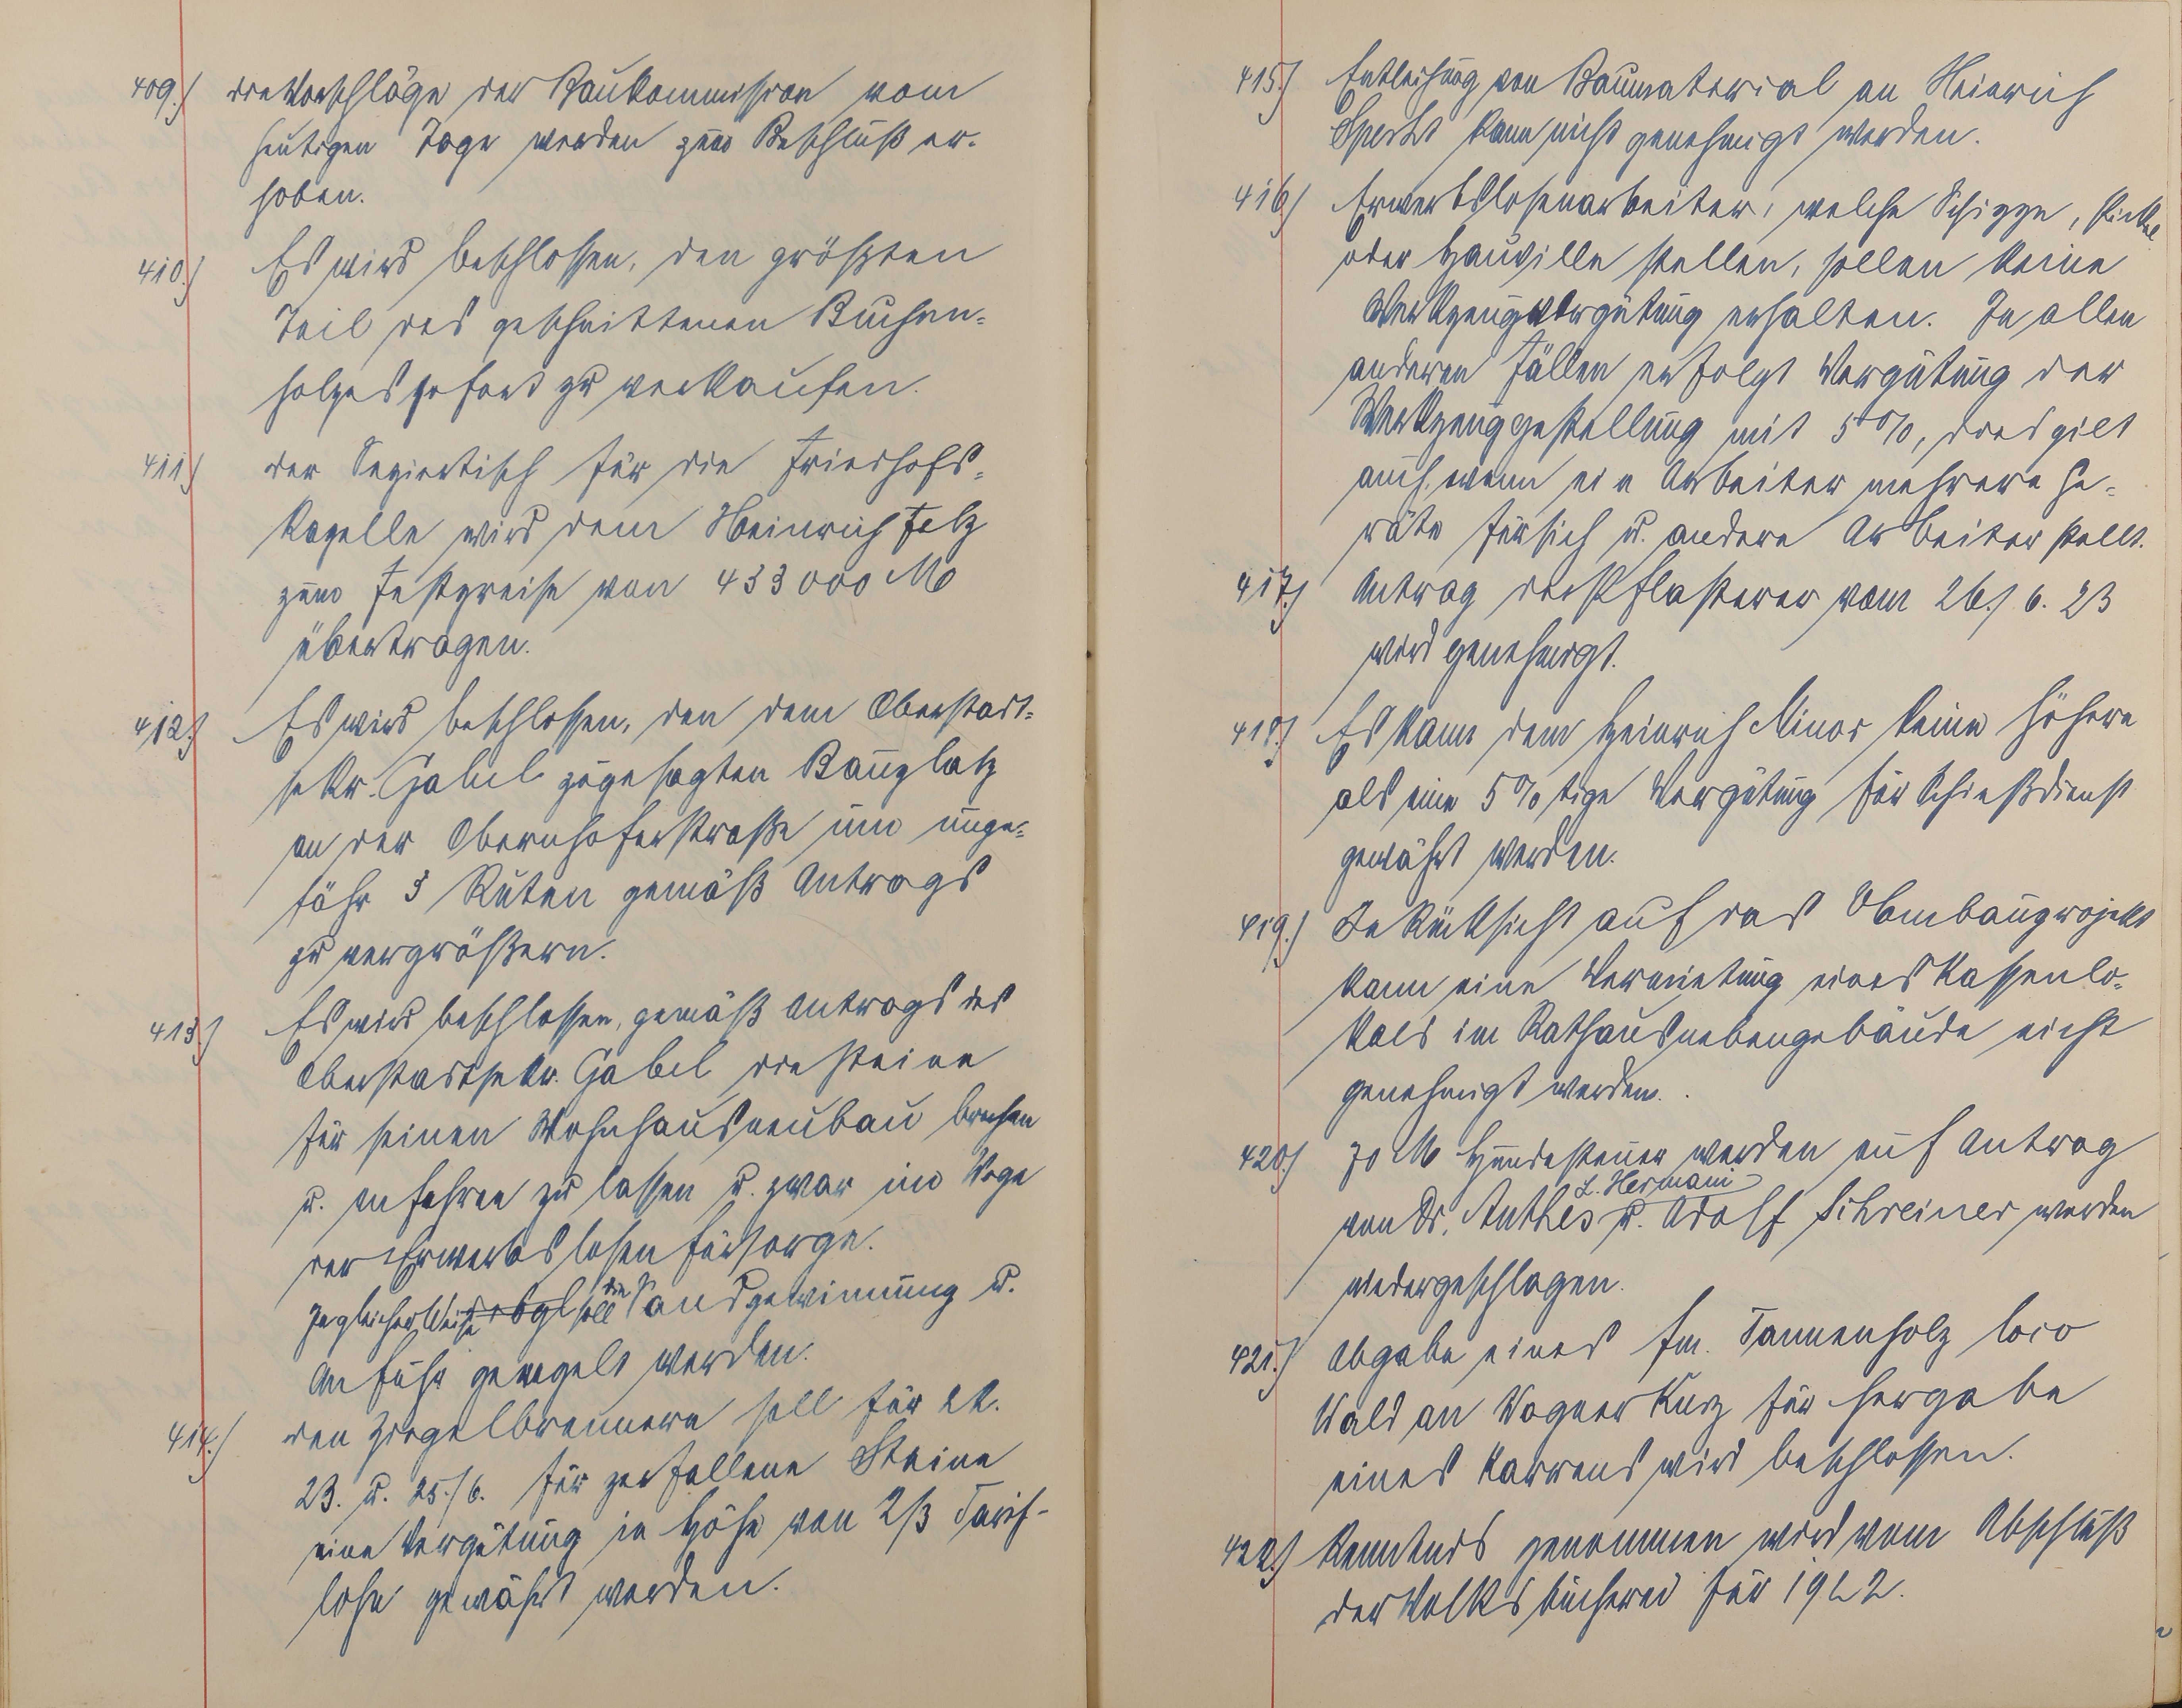 409.) die Vorschläge der Baukommission vom
heutigen Tage werden zum Beschluß er-
hoben.
410.) Es wird beschlossen, den größten
Teil des geschnittenen Buchen-
holzes sofort zu verkaufen.
411.) der Seziertisch für die Friedhofs-
kapelle wird dem Heinrich Felz
zum Festpreise von 433 000 M
übertragen.
412.) Es wird beschlossen, den dem Oberstadt-
sekr. Gabel zugesagten Bauplatz
an der Obernhoferstraße um unge-
fähr 3 Ruten gemäß Antrags
zu vergrößern.
413.) Es wird beschlossen, gemäß Antrags des
Oberstadtsekr. Gabel die Steine
für seinen Wohnhausneubau brechen
u. anfahren zu lassen u. zwar im Wege
der Erwerbslosenfürsorge.
In gleicher Weise soll die Sandgewinnung u.
Anfuhr geregelt werden.
414.) den Ziegelbrennern soll für 22.
23. u. 25./6. für zerfallene Steine
eine Vergütung in Höhe von 2/3 Tarif-
lohn gewährt werden.
415.) Entleihung von Baumaterial an Heinrich
Specht kann nicht genehmigt werden.
416.) Erwerbslosenarbeiter, welche Schippe, Pickel
oder stellen, sollen keine
Werkzeugvergütung erhalten. In allen
anderen Fällen erfolgt Vergütung der
Werkzeuggestellung mit 5 %, dies gilt
auch, wenn ein Arbeiter mehrere Ge-
räte für sich u. andere Arbeiter stellt.
417.) Antrag der Pflasterer vom 26./6. 23
wird genehmigt.
418.) Es kann dem Heinrich Minor keine höhere
als eine 5 % tige Vergütung für Schießdienst
gewährt werden.
419.) In Rücksicht auf das Umbauprojekt
kann eine Vermietung eines Kassenlo-
kals im Rathausnebengebäude nicht
genehmigt werden.
420.) 70 M Hundesteuer werden auf Antrag
L. Hermani
von Dr. Anthes u. Adolf Schreiner werden
niedergeschlagen.
421.) Abgabe eines fm. Tannenholz loco
Wald an Wagner Kurz für Hergabe
eines Karrens wird beschlossen.
422.) Kenntnis genommen wird vom Abschluß
der Volksbücherei für 1922.